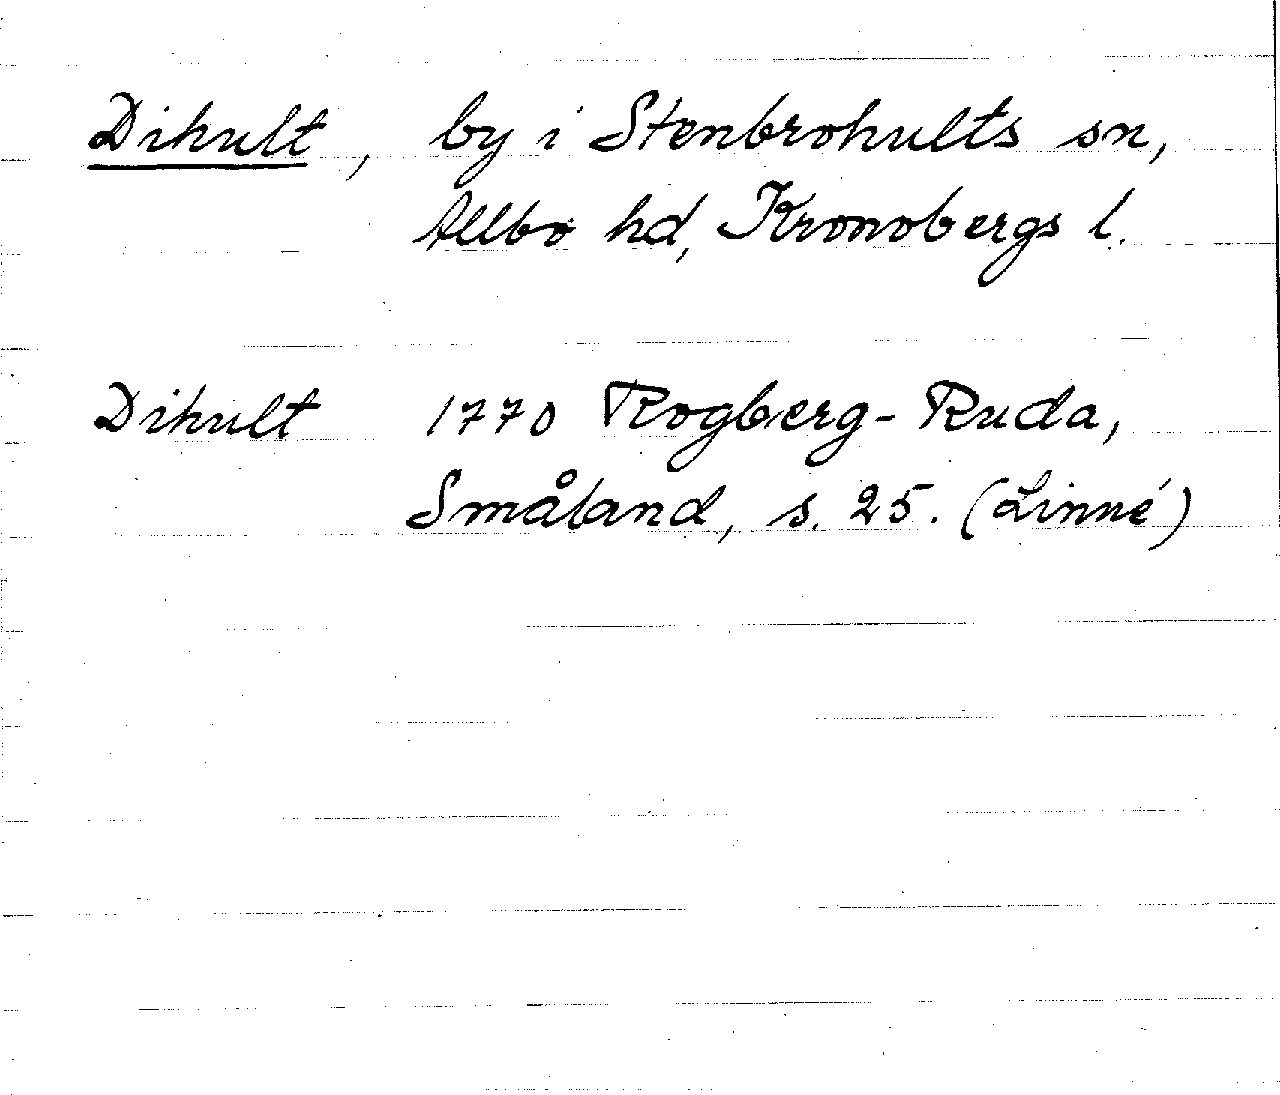 Dihult, by i Stenbrohults sn,
Allbo hd, Kronobergs l.
Dihult 1770 Rogberg-Ruda,
Småland, s. 25. (Linné)